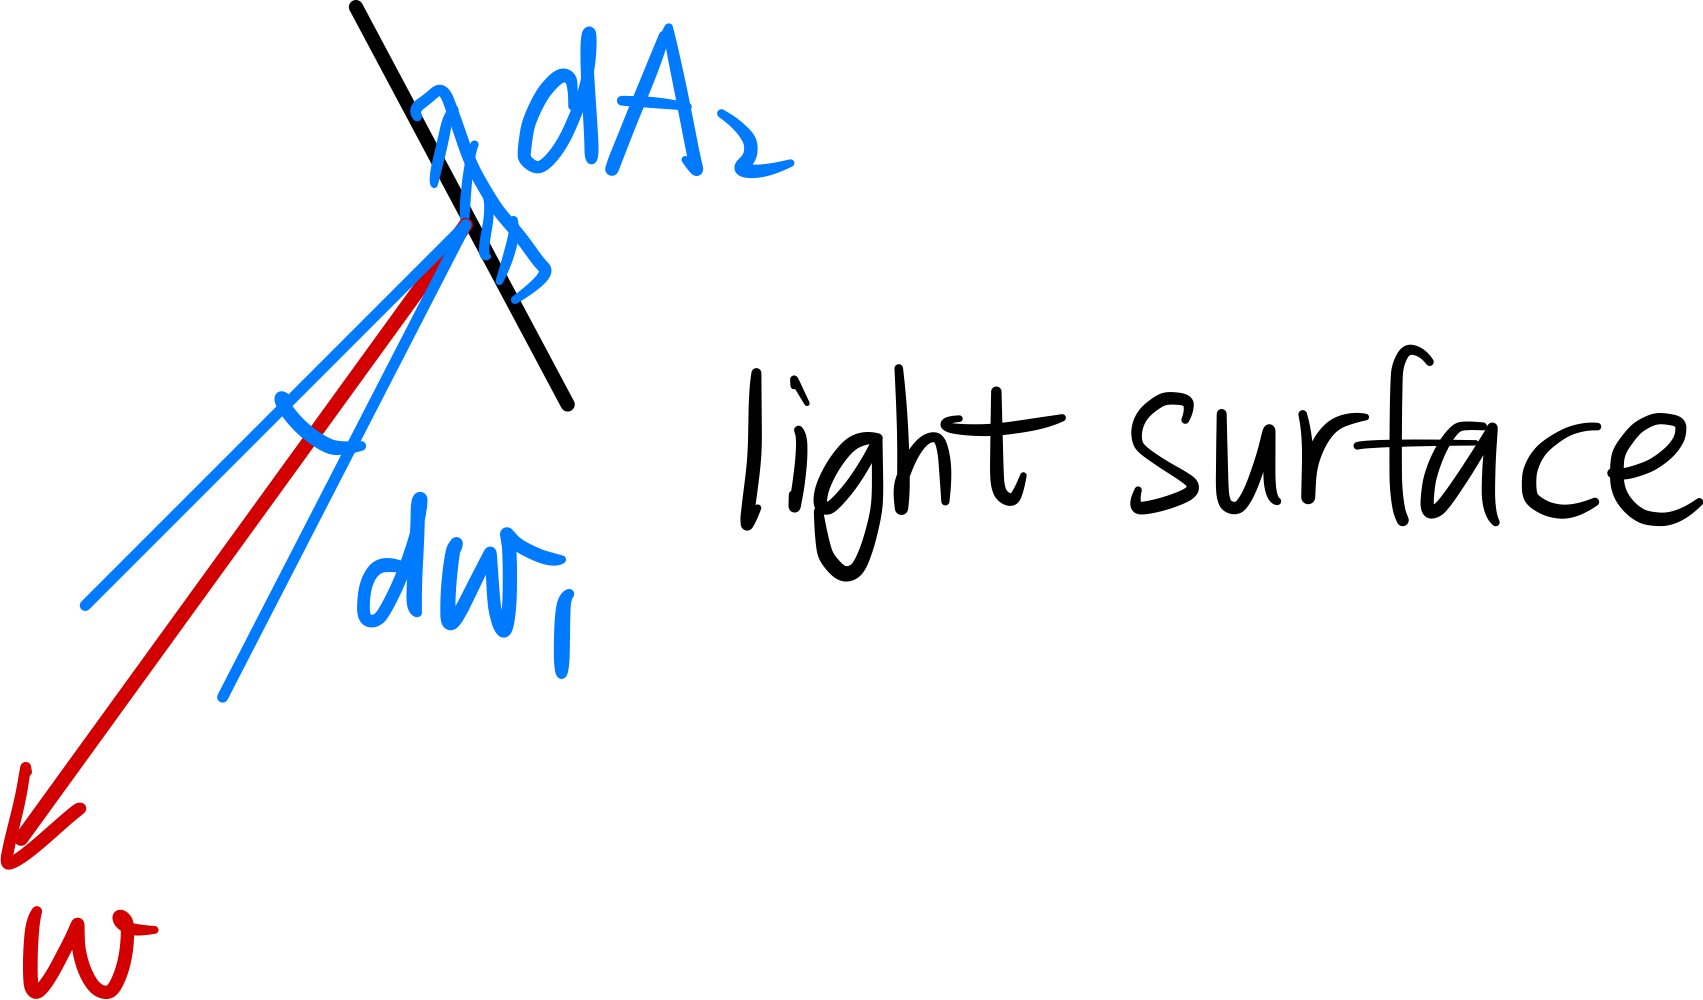 dA₂
light surface
dw₁
w